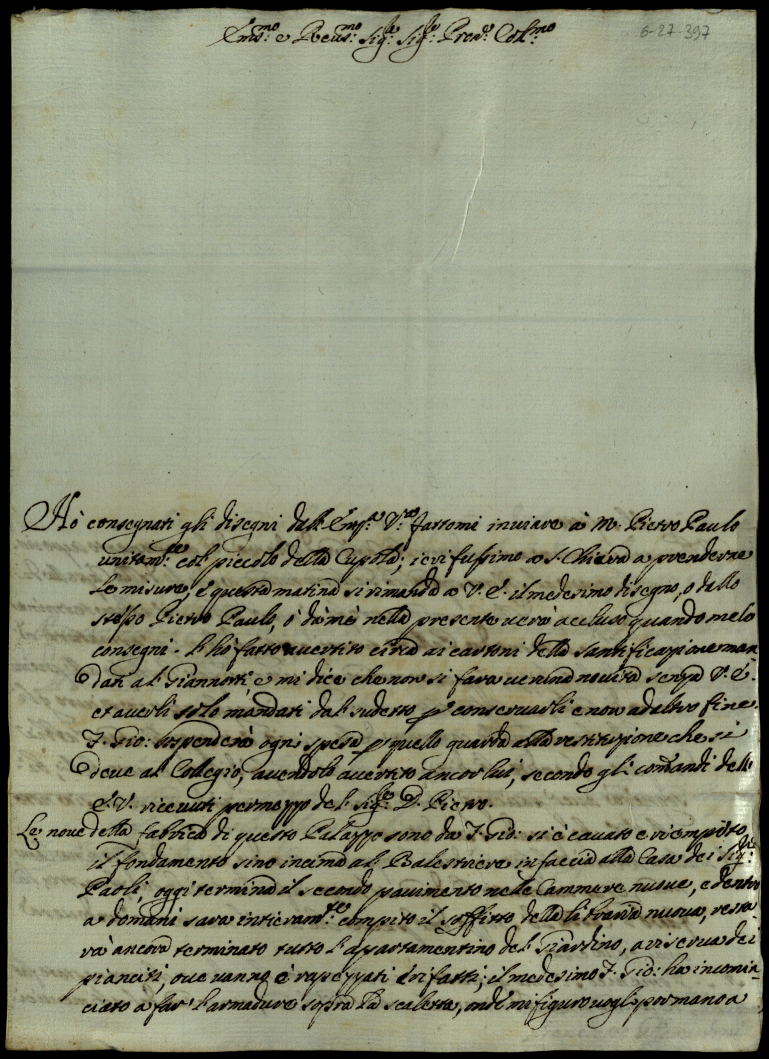 Em.mo e Reu.mo Sig.re Sig.re Pron.e Col.mo
6-27-397
Hò consegnati gli disegni dall'Em.za V.ra fattomi inuiare à M. Pietro Paulo
unitam.te col piccolo della Cupola; ieri fussimo a S. Chiara a prenderne
le misure, e questa matina si rimanda a V. E. il medesimo disegno, o dallo
stesso Pietro Paulo, ò da mè nella presente uerà accluso quando melo
consegni. L'hò fatto auertito circa ai cartoni della Santificazione man
dati al Giannotti, e mi dice che non si farà ueruna nouità senza V. E.
et auerli solo mandati dal sudetto p conseruarli e non ad altro fine.
F. Gio: sospenderà ogni spesa p quello guarda alla restituzione che si
deue al Collegio, auendolo auertito ancor lui, secondo gli comandi dell
E.V. riceuuti permezzo del Sig.re D. Pietro.
Le noue della fabrica di questo Palazzo sono da F. Gio: si è cauato e riempito
il fondamento sino incima al Balestriere infaccia alla Casa dei Sig.ri
Paoli, oggi termina il secondo pauimento nelle Cammere nuoue, e dentro
a domani sarà intieram.te compito il soffitto della libraria nuoua, resta
rà ancora terminato tutto l'apartamentino del Giardino, a riserua dei
pianciti, oue uanno è rapezzati è rifatti; il medesimo F. Gio: ha incomin
ciato a far l'armature sopra la scaletta, onde mi figuro uogli por mano a